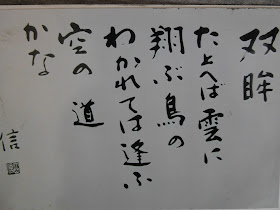 双眸
たとへば雲に
翔ぶ鳥の
わかれては逢ふ
空の道
かな
信